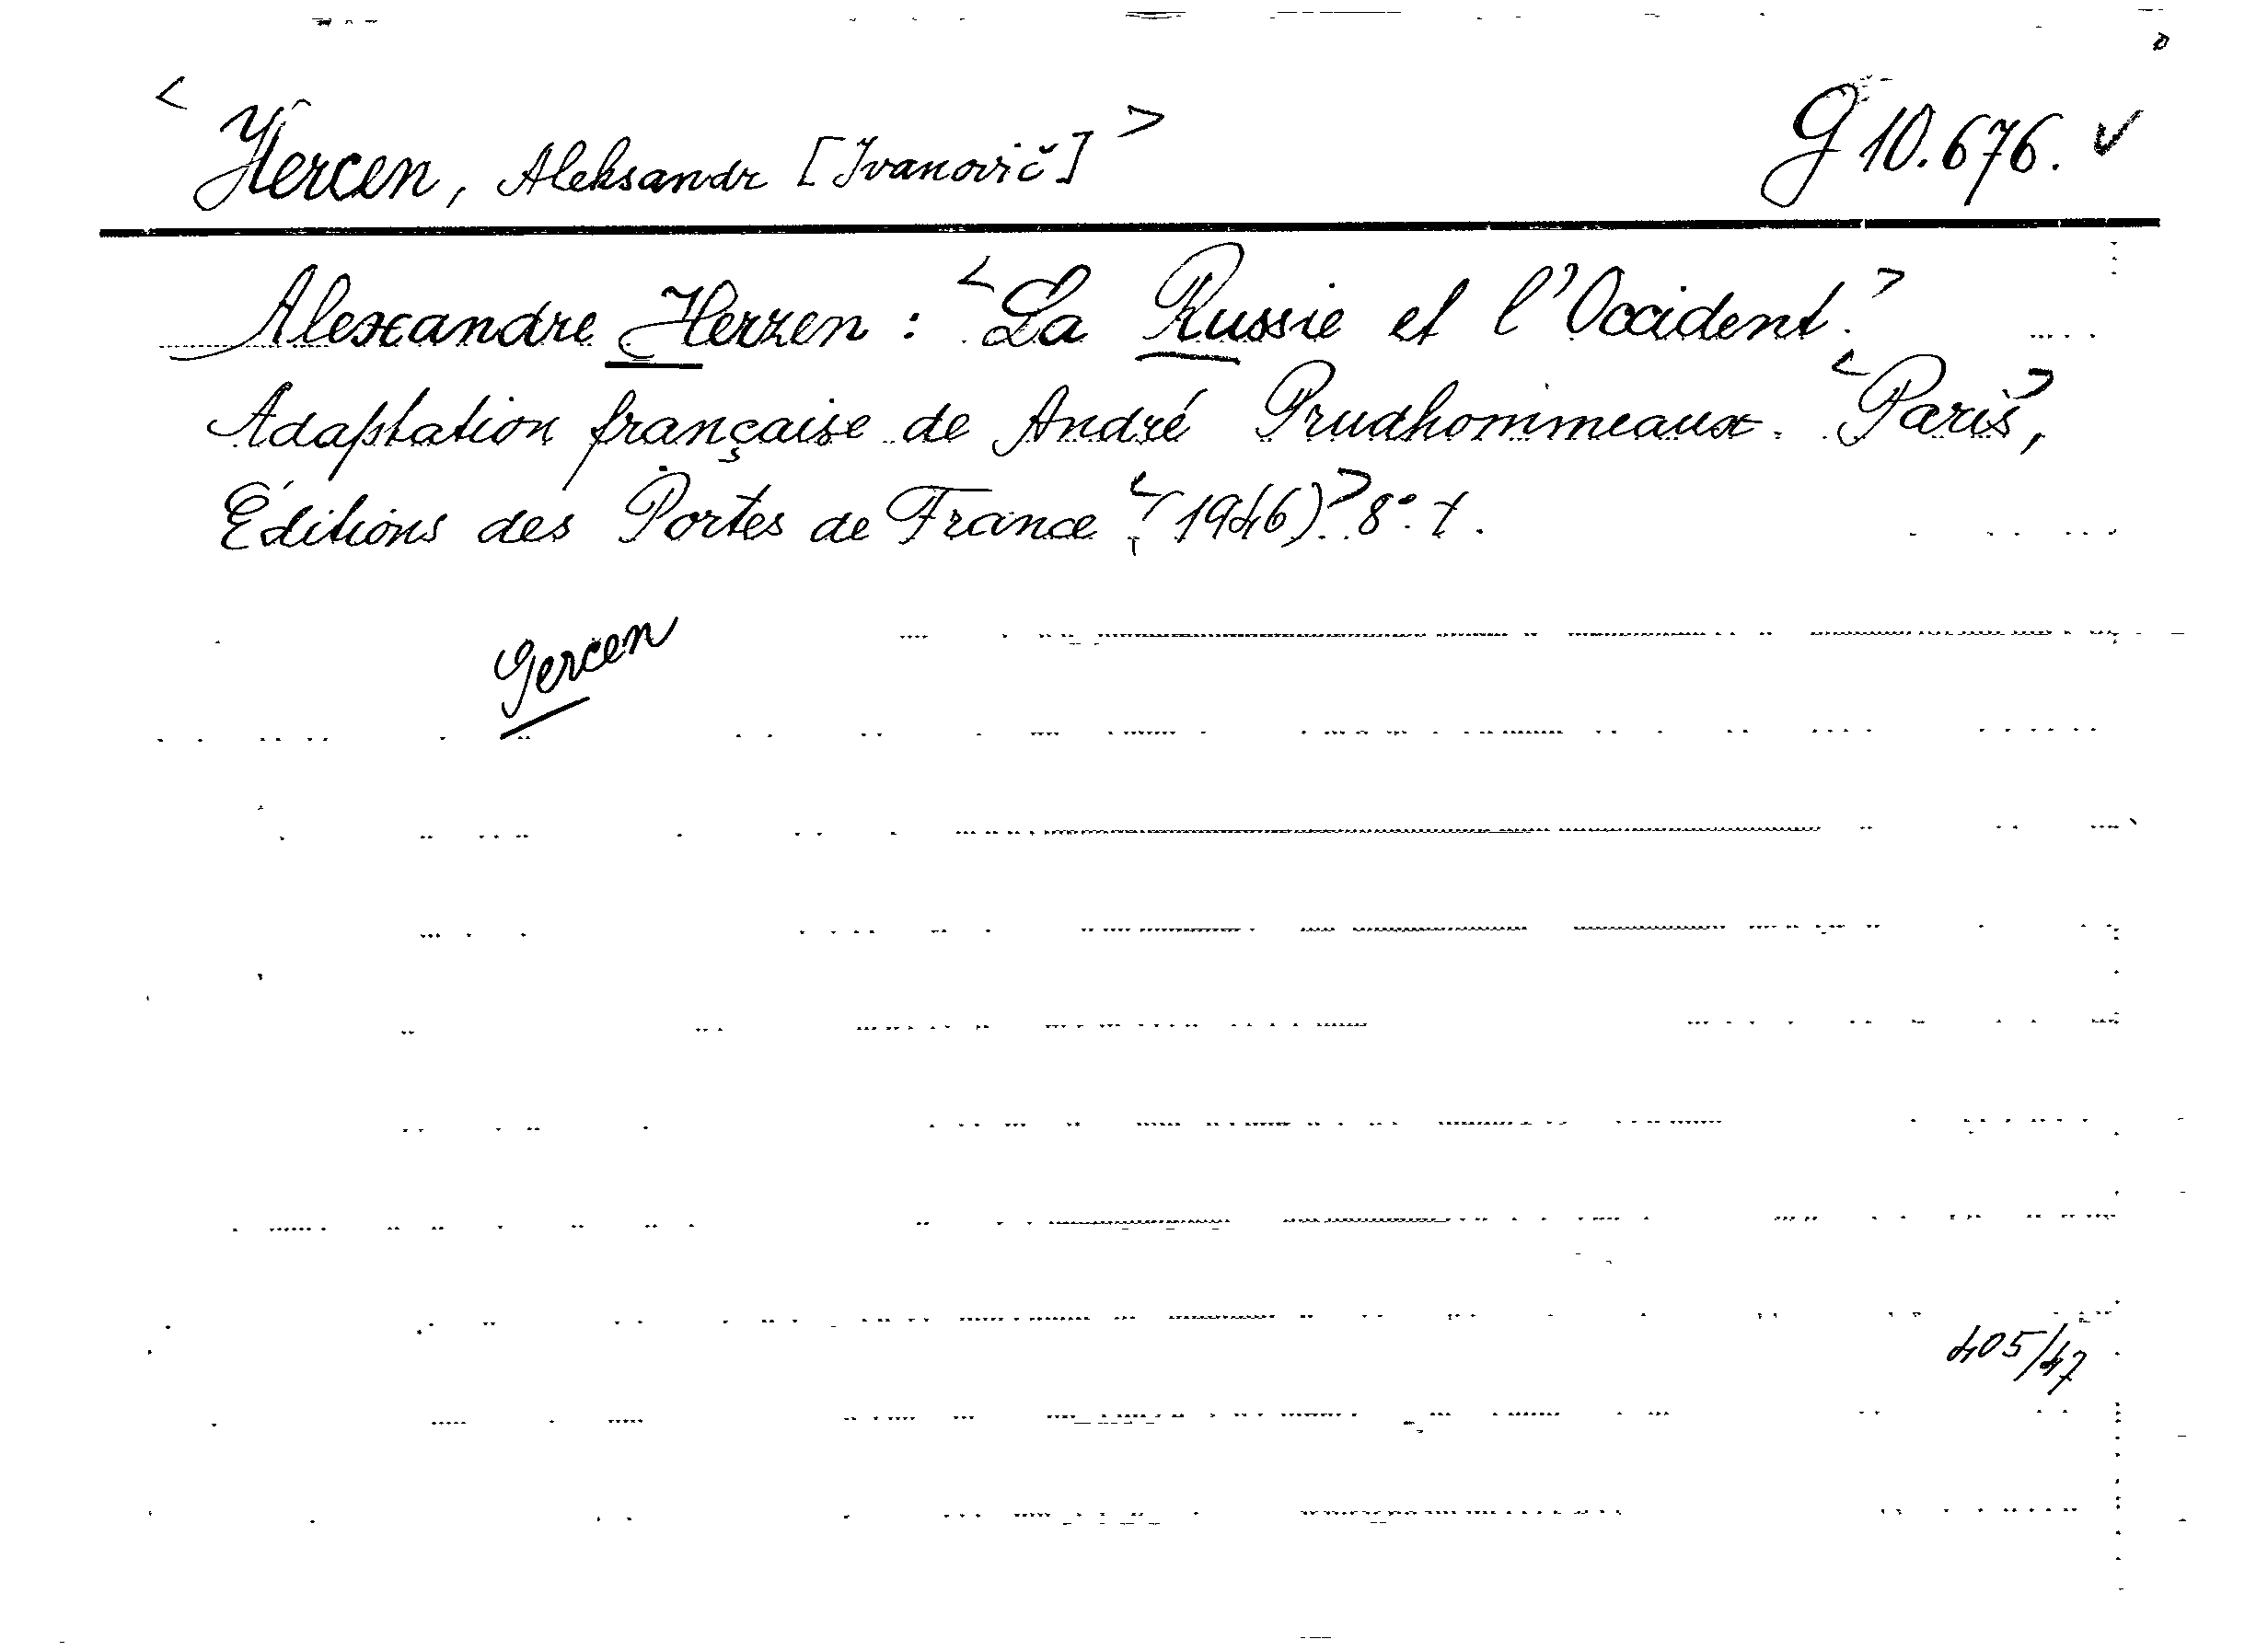 < Hercen, Aleksandr [Ivanovič] > G 10.676. ✓
Alexandre Herzen : <La Russie et l'Occident.>
Adaptation française de André Prudhommeaux. <Paris>,
Éditions des Portes de France <(1946)>. 8°.
Gercen
405/47